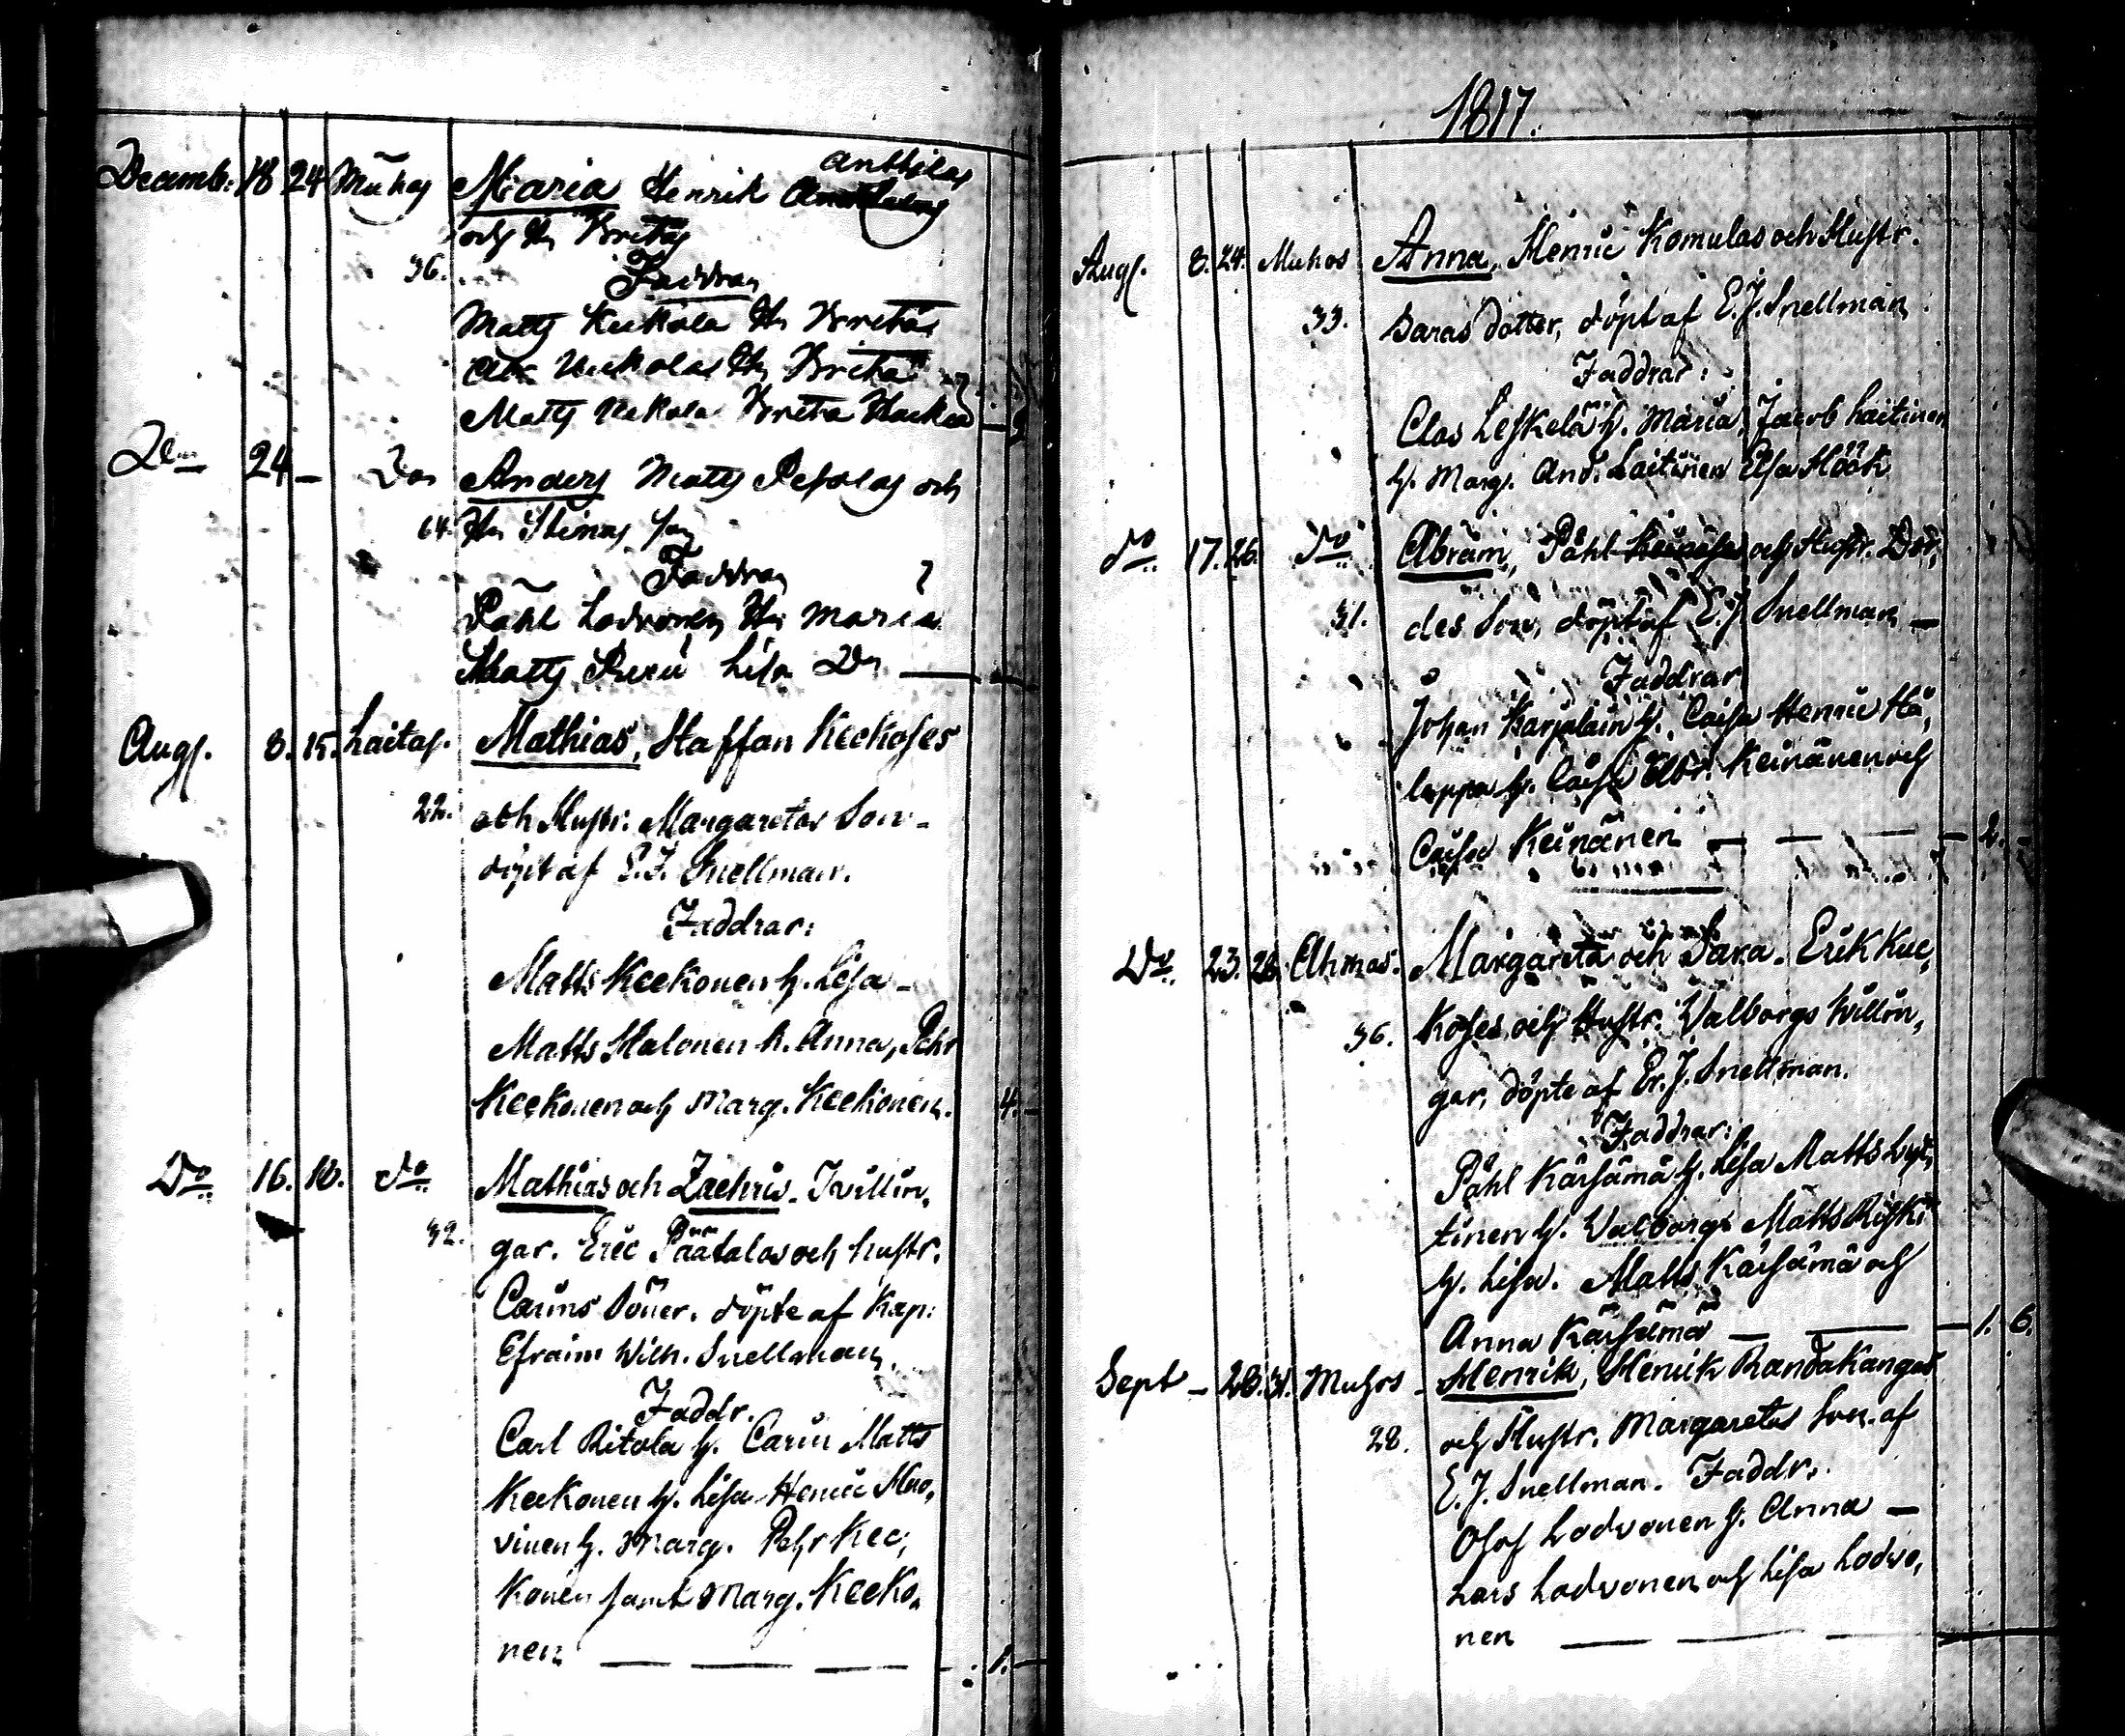 Decemb: 18 24 Muhos Maria Henrik Anttilas
och H. Britas
36. Faddrar
Matts Keckola H. Brita
Abr Keckola H. Brita
Matts Keckola Brita
Do 24 – Do Anders Matts Pesolas och
64. H. Stinas son
Faddrar
Påhl Lodvonen H. Maria
Matts Lisa Do
Augs. 8. 15. Laitas. Mathias, Staffan Keckoses
22. och Hustr: Margaretas Son
döpt af E. J. Snellman.
Faddrar:
Matts Keckonen h. Lisa
Matts Halonen h. Anna, Pehr
Keckonen och Marg. Keckonen. 4. –
Do 16. 18. do Mathias och Zachris. Tvillin,
32. gar. Eric Päätalos och hustr.
Carins Söner. döpte af Kap:
Efraim Wilh. Snellman.
Faddr.
Carl Ritola h. Carin Matts
Keckonen h. Lisa Henric Huo,
vinen h. Marg. Pehr Kec,
konen samt Marg. Kecko,
nen — — — 1. –
1817.
Augs. 8. 24. Muhos Anna, Henric Komulas och Hustr.
33. Saras dotter, döpt af E. J. Snellman.
Faddrar:
Clas Leskelä h. Maria, Jacob Laitinen
h. Marg. And. Laitinen Elsa Höök
do 17. 26. do Abram, Påhl och Hustr. Dor,
31. des Son, döpt af E. J. Snellman —
Faddrar
Johan Karjalain h. Caisa Henric Hä,
lappa h. Caisa Abr. Keinänen och
Caisa Keinänen — — — 2. –
Do 23. 26. Ahmas. Margareta och Sara. Erik Kec,
36. koses och Hustr. Valborgs tvillin,
gar, döpte af Er. J. Snellman.
Faddrar:
Påhl Kärsämä h. Lisa Matts Lyt,
tinen h. Valborg Matts
h. Lisa. Matts Kärsämä och
Anna Kärsämä — — 1. 6.
Sept – 28. 31. Muhos – Henrik, Henrik Randakangas
28. och Hustr. Margaretas Son. af
E. J. Snellman. Faddr.
Olof Lodvonen h. Anna —
Lars Lodvonen och Lisa Lodvo,
nen — — —